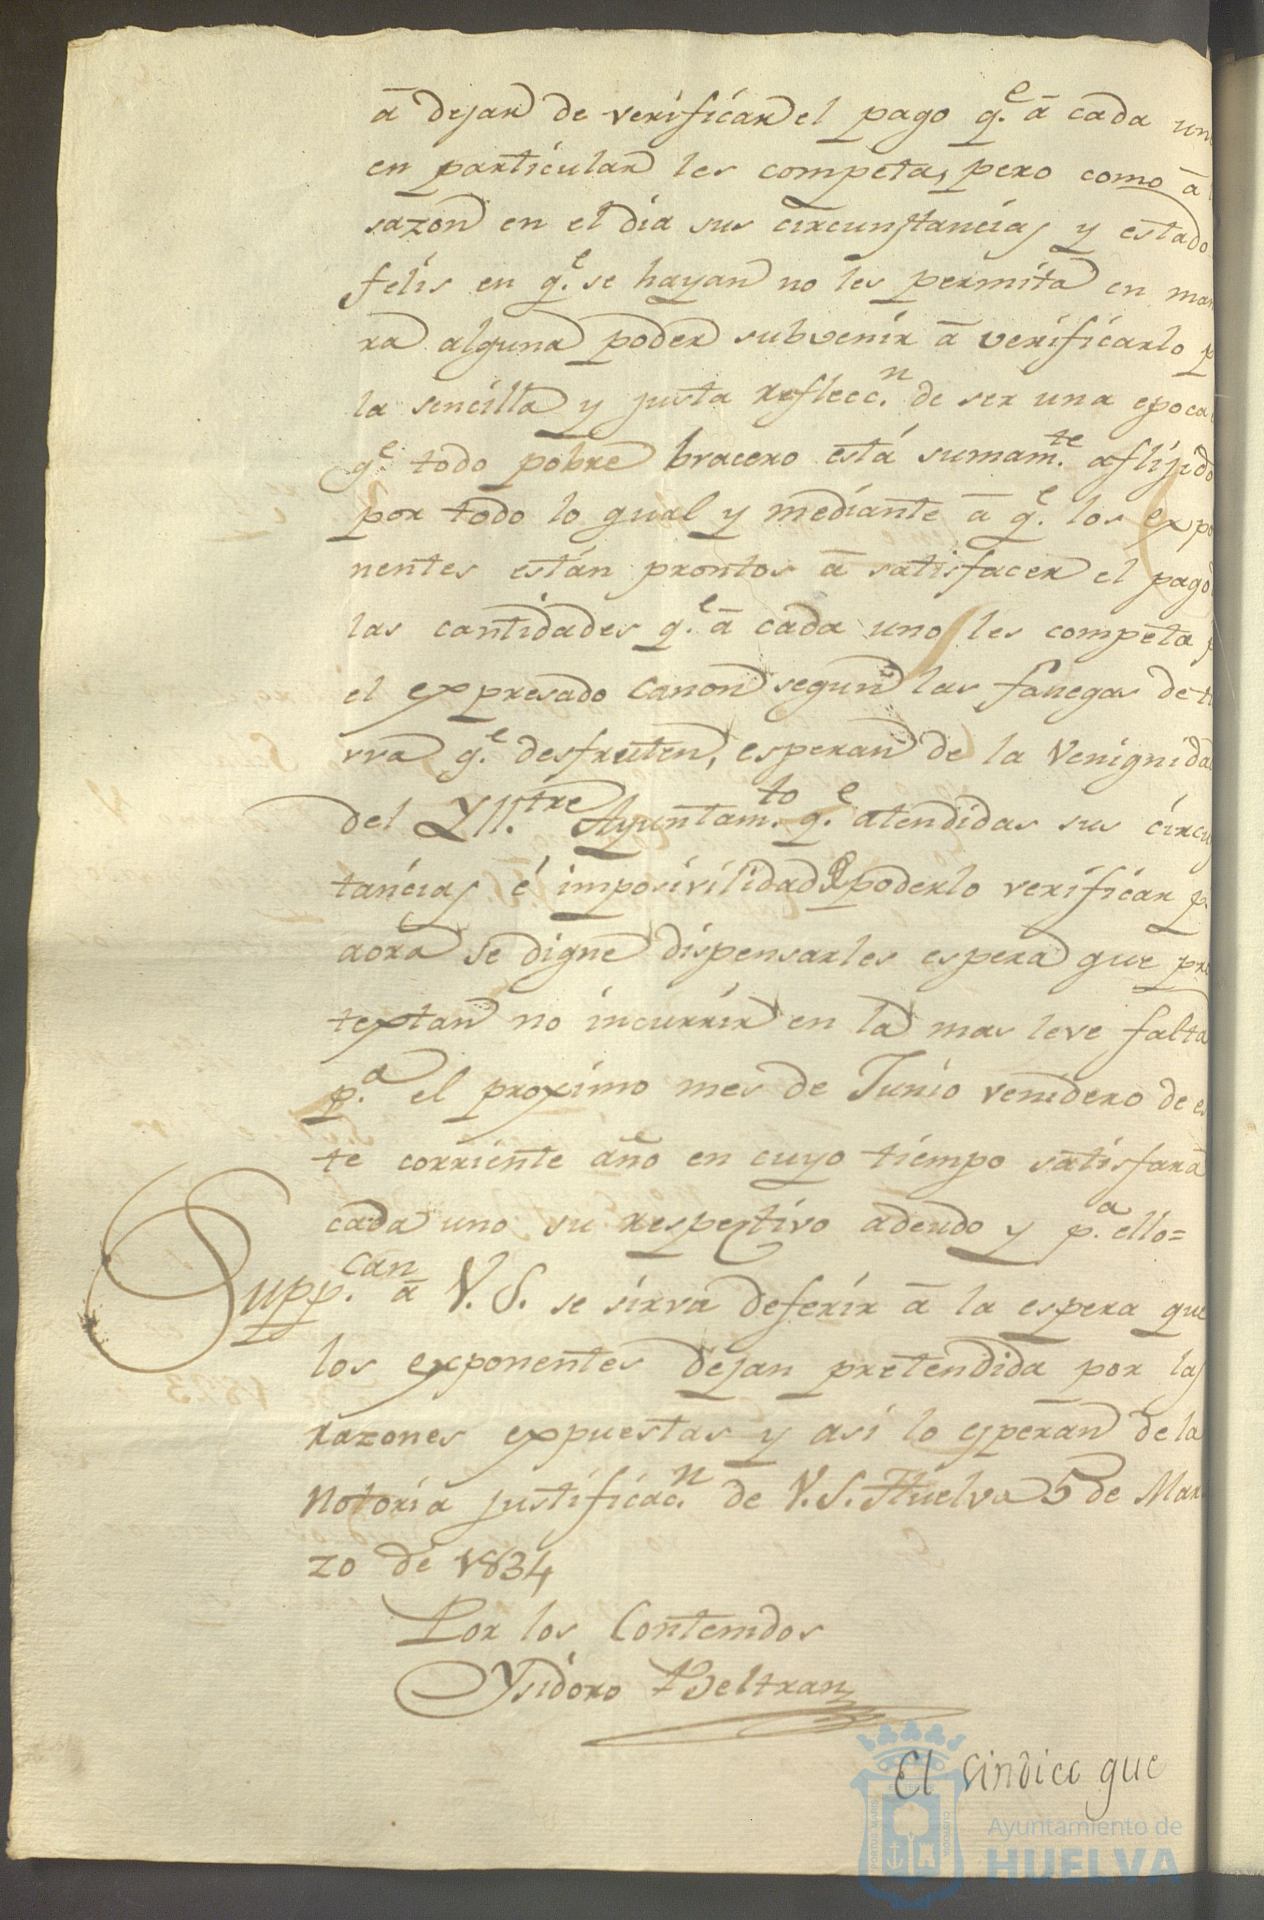 â dejar de verificar el pago q.e â cada un
en particular les competa, pero como â
sazon en el dia sus circunstancias y estado
felis en q.e se hayan no les permita en ma
ra alguna poder subvenir â verificarlo p
la sencilla y justa reflecc.n de ser una epoca
q.e todo pobre bracero está sumam.te aflijido
por todo lo qual y mediante â q.e los expo
nentes están prontos â satisfacer el pago
las cantidades q.e â cada uno les competa p
el expresado canon segun las fanegas de ti
rra q.e desfruten, esperan de la Venignida
del Yll.tre Ayuntam.to q.e atendidas sus circu
tancias é imposivilidad d poderlo verificar p
aora se digne dispensarles espera que pro
textan no incurrir en la mas leve falta
p.a el proximo mes de Junio venidero de es
te corriente año en cuyo tiempo satisfará
cada uno su respectivo adeudo y p.a ello=
Supp.can â V. S. se sirva deferir â la espera que
los exponentes dejan pretendida por las
razones expuestas y asi lo esperan de la
Notoria justificac.n de V. S. Huelva 5 de Mar
zo de 1834
Por los Contenidos
Ysidoro Beltran
El Sindico que
Ayuntamiento de
HUELVA